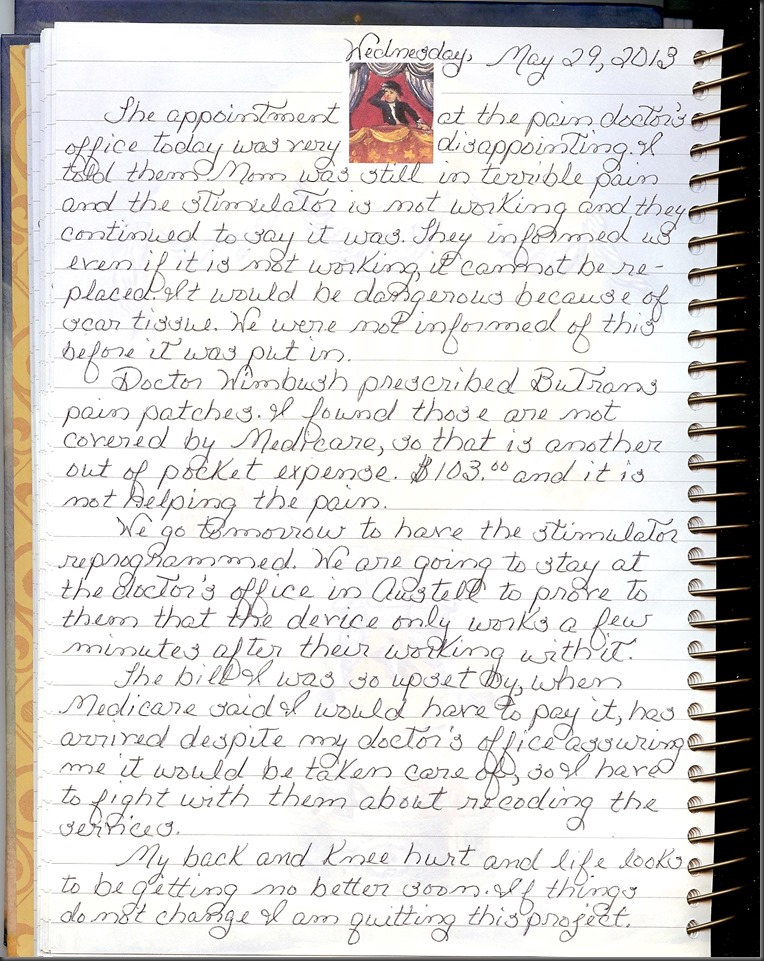 Wednesday, May 29, 2013
The appointment at the pain doctor's
office today was very disappointing. I
told them Mom was still in terrible pain
and the stimulator is not working and they
continued to say it was. They informed us
even if it is not working it cannot be re-
placed. It would be dangerous because of
scar tissue. We were not informed of this
before it was put in.
Doctor Wimbush prescribed BuTrans
pain patches. I found those are not
covered by Medicare, so that is another
out of pocket expense. $103.00 and it is
not helping the pain.
We go tomorrow to have the stimulator
reprogrammed. We are going to stay at
the doctor's office in Austell to prove to
them that the device only works a few
minutes after their working with it.
The bill I was so upset by, when
Medicare said I would have to pay it, has
arrived despite my doctor's office assuring
me it would be taken care of, so I have
to fight with them about recoding the
services.
My back and knee hurt and life looks
to be getting no better soon. If things
do not change I am quitting this project.